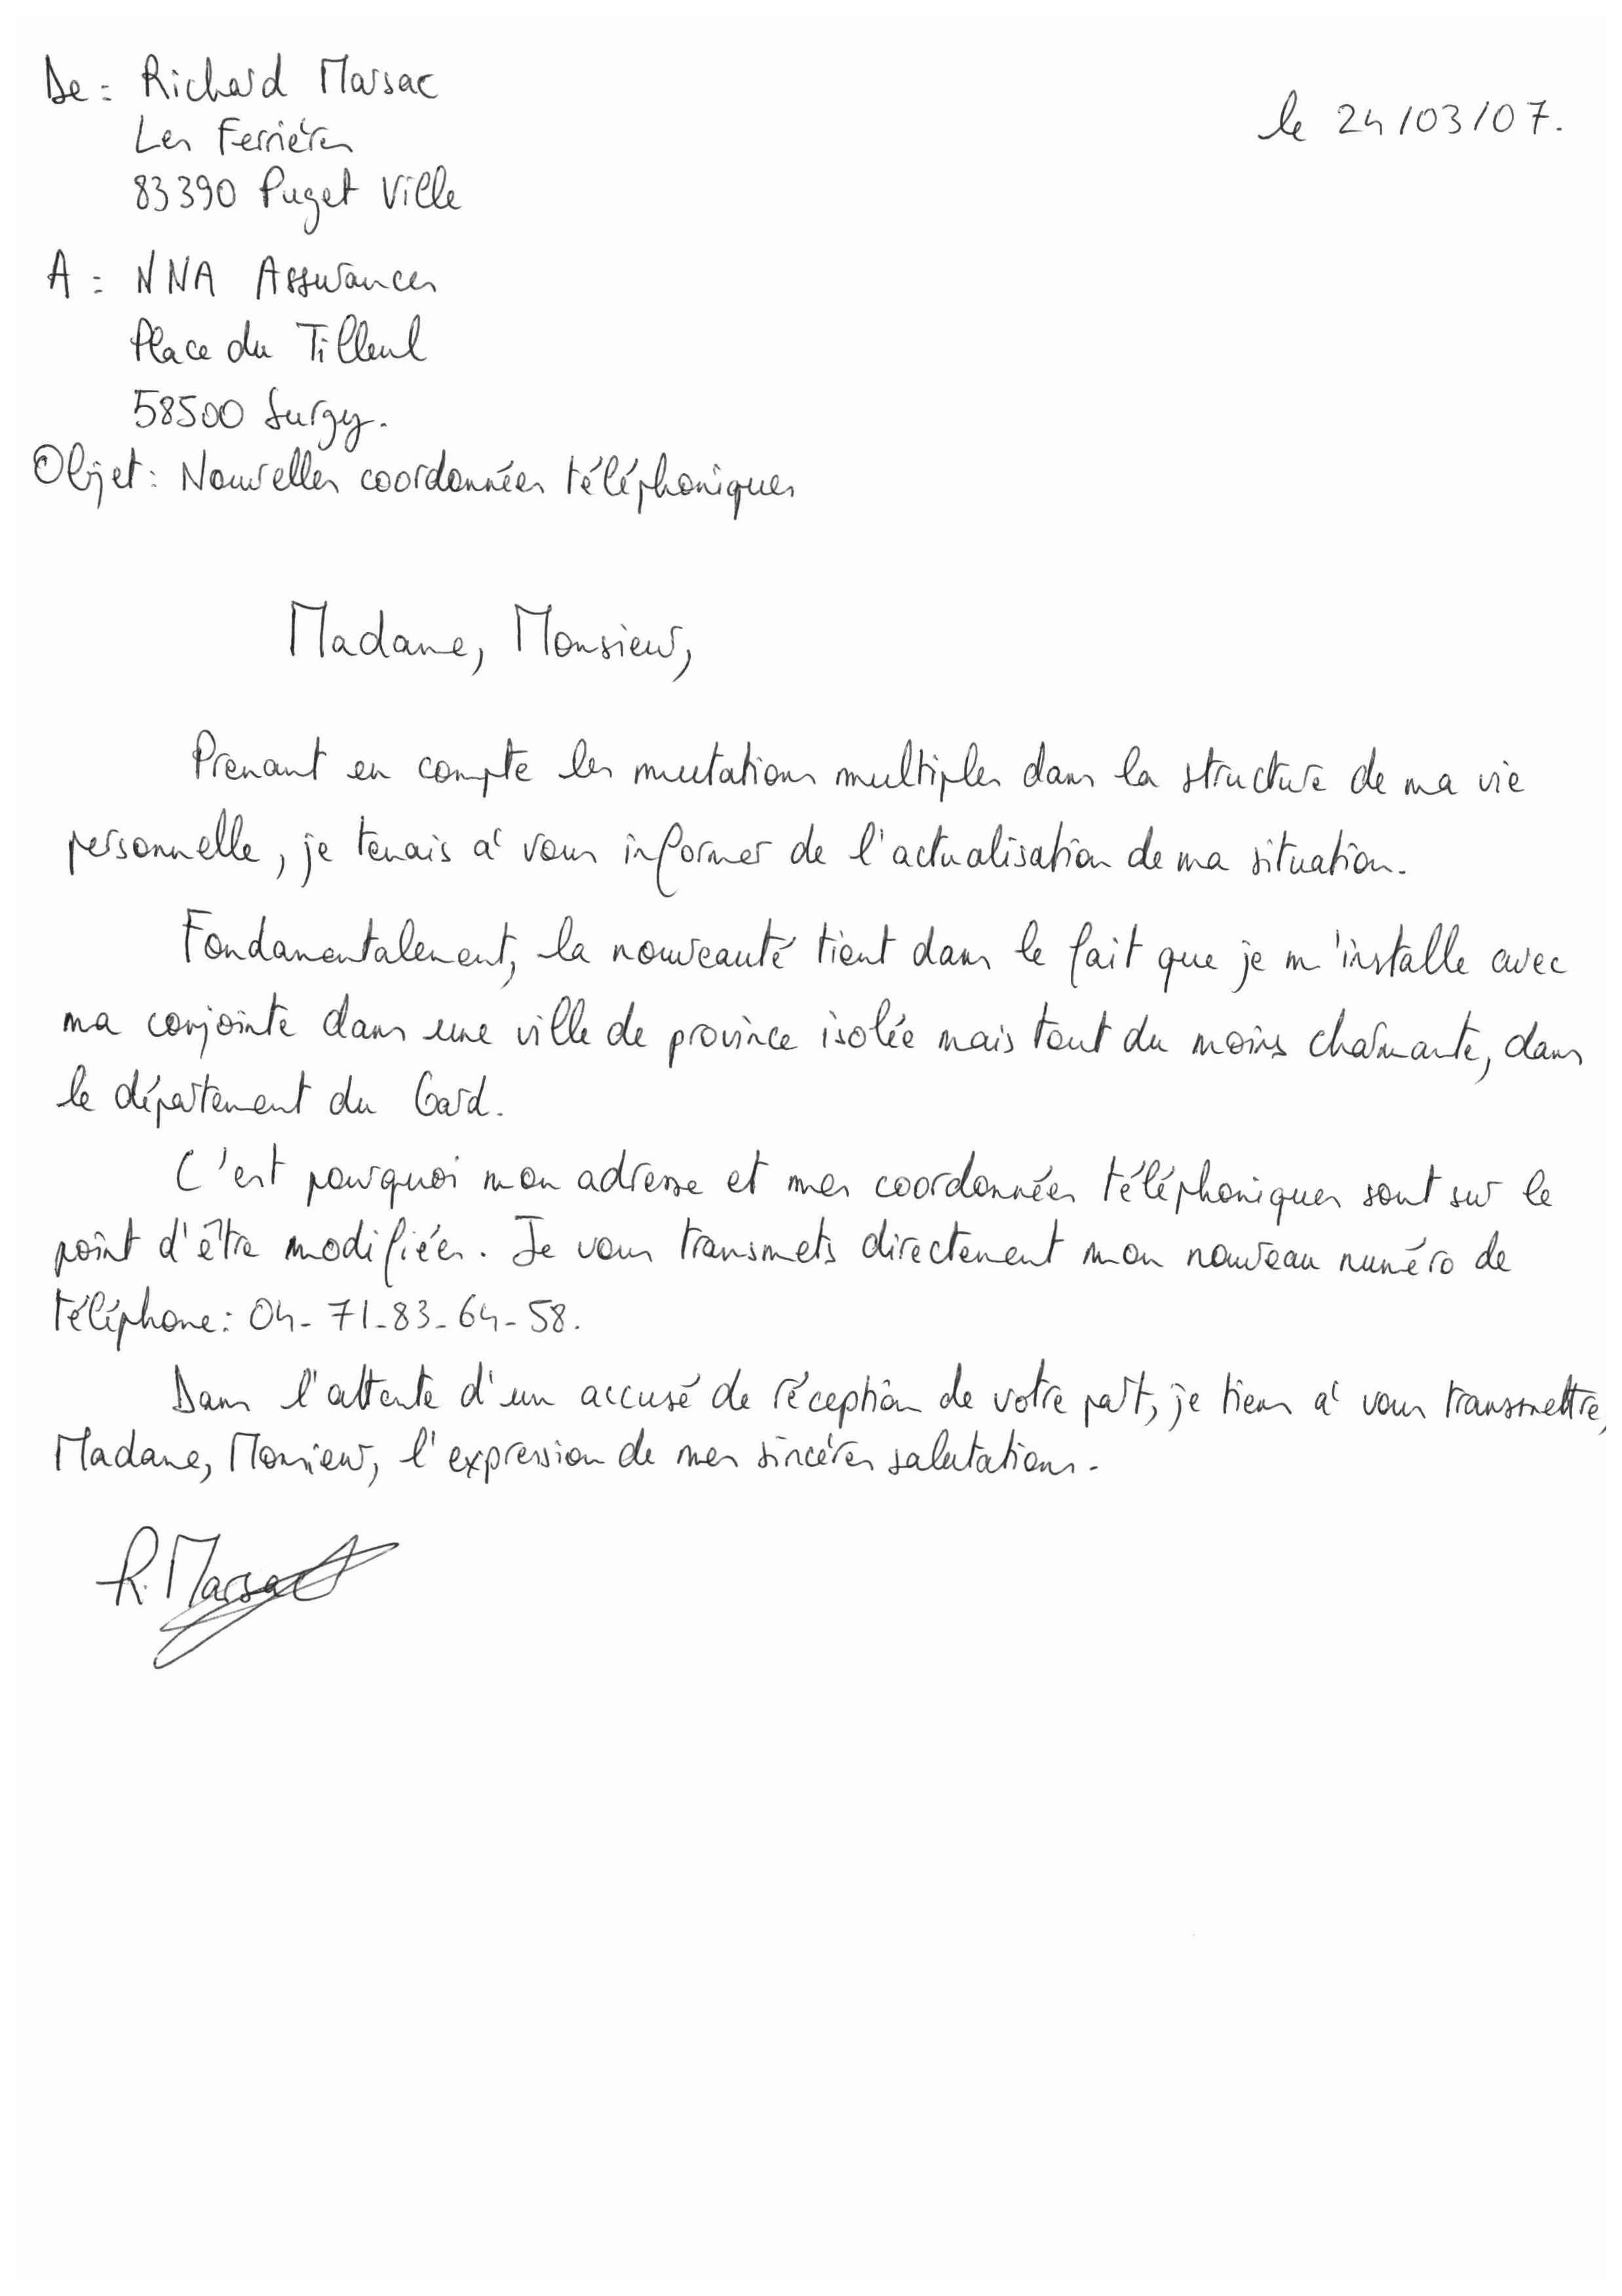 De : Richard Marsac
le 24/03/07.
Les Ferrières
83390 Puget Ville
A : NNA Assurances
Place du Tilleul
58500 Surgy.
Objet : Nouvelles coordonnées téléphoniques
Madame, Monsieur,
Prenant en compte les mutations multiples dans la structure de ma vie
personnelle, je tenais à vous informer de l'actualisation de ma situation.
Fondamentalement, la nouveauté tient dans le fait que je m'installe avec
ma conjointe dans une ville de province isolée mais tout du moins charmante, dans
le département du Gard.
C'est pourquoi mon adresse et mes coordonnées téléphoniques sont sur le
point d'être modifiées. Je vous transmets directement mon nouveau numéro de
téléphone : 04-71-83-64-58.
Dans l'attente d'un accusé de réception de votre part, je tiens à vous transmettre,
Madame, Monsieur, l'expression de mes sincères salutations.
R. Marsac